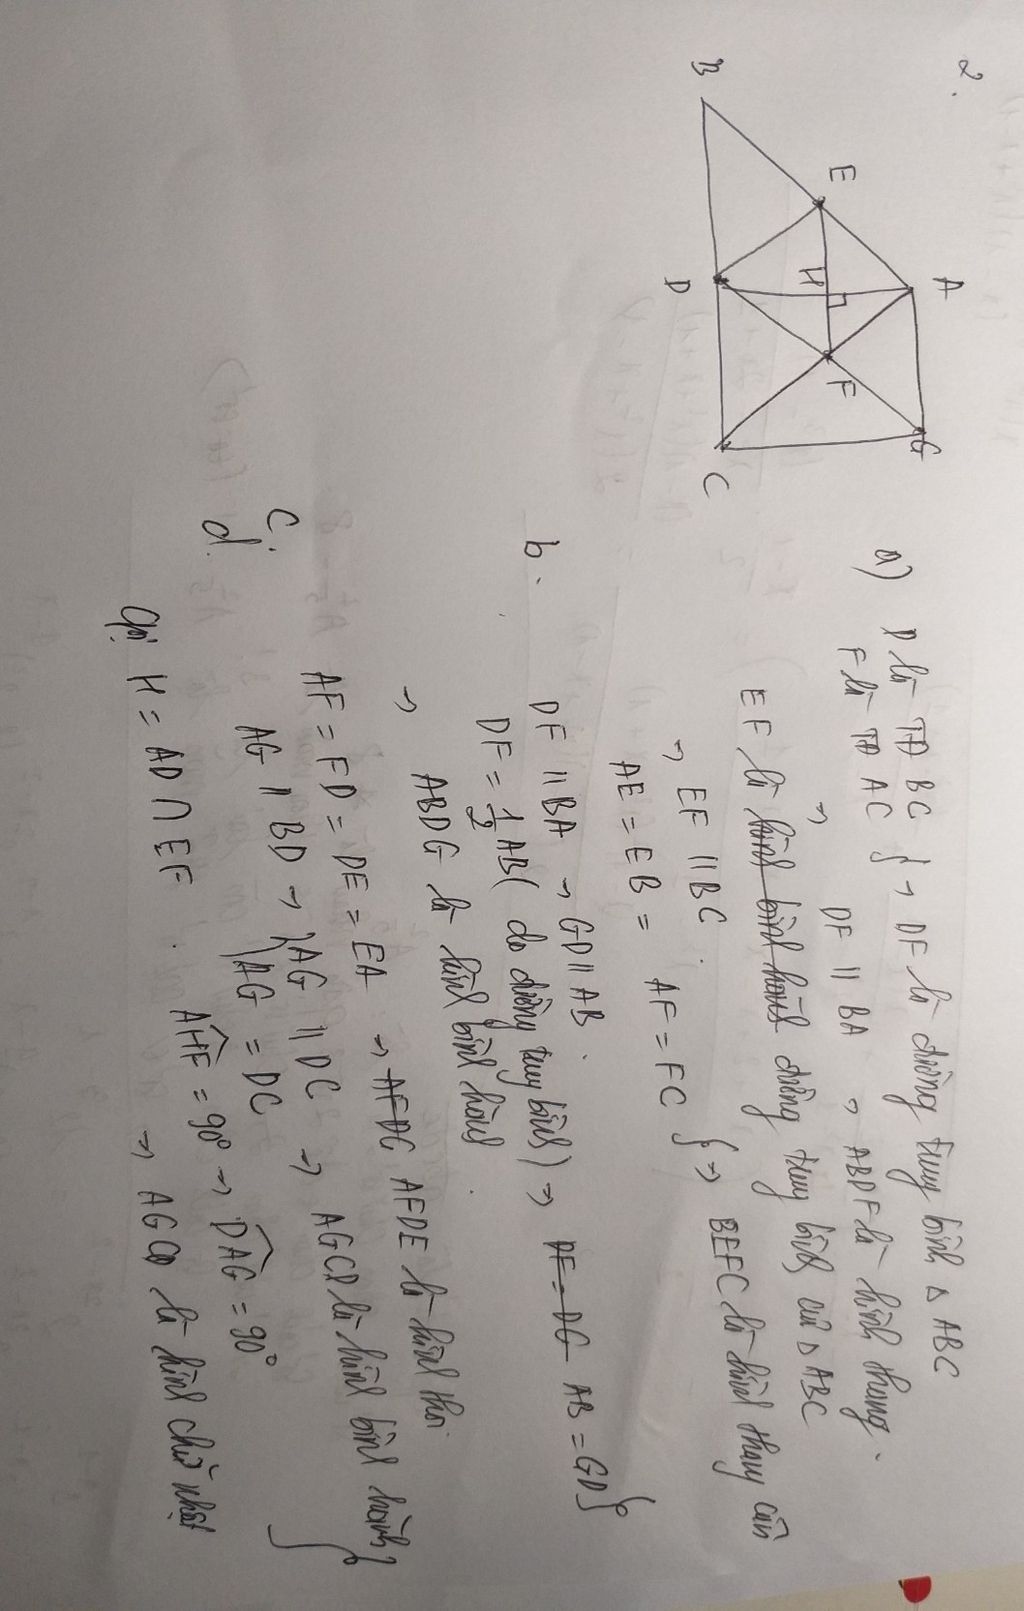 2.
A
E
H
F
G
B
D
C
a) D là TĐ BC
F là TĐ AC } → DF là đường trung bình △ ABC
→ DF // BA → ABDF là hình thang.
EF là hình bình hành đường trung bình của △ ABC
→ EF // BC.
AE = EB = AF = FC } → BEFC là hình thang cân
b. DF // BA → GD // AB.
DF = 1/2 AB ( do đường trung bình ) → DF = DG AB = GD }
→ ABDG là hình bình hành.
c. AF = FD = DE = EA → AFDG AFDE là hình thoi.
d. AG // BD → { AG // DC
AG = DC → AGCD là hình bình hành }
Gọi H = AD ∩ EF. AHF = 90° → DAG = 90°
→ AGCD là hình chữ nhật